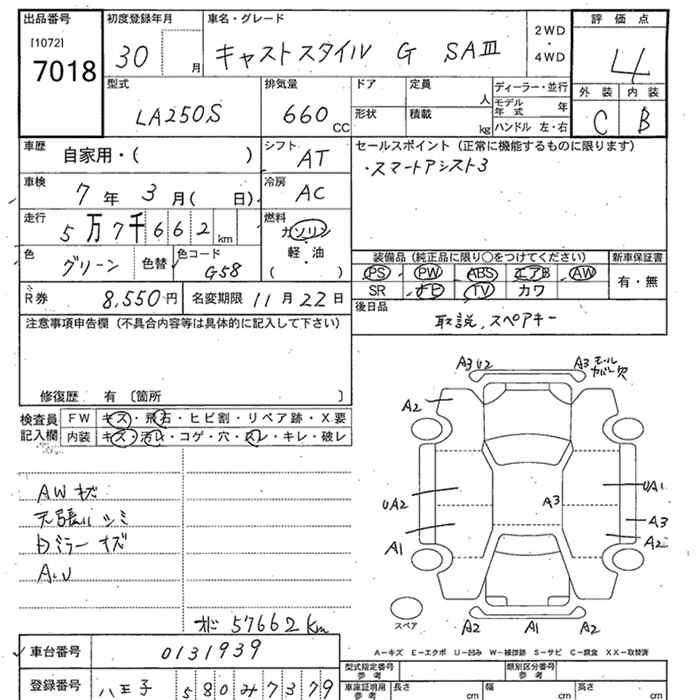 出品番号
[1072]
7018
初度登録年月
30 月
車名・グレード
キャストスタイル G SAⅢ
2WD
・
4WD
評価点
4
外装 内装
C B
型式
LA250S
排気量
660 CC
ドア
形状
定員 人
積載 kg
ディーラー・並行
モデル年式 年
ハンドル 左・右
車歴
自家用・( )
シフト
AT
車検
7年3月( 日)
冷房
AC
走行
5万7千662km
燃料
ガソリン
・
軽・油
( )
色
グリーン
色替
色コード
G58
R券
8,550円
名変期限 11月22日
セールスポイント(正常に機能するものに限ります)
・スマートアシスト3
装備品(純正品に限り○をつけてください)
PS PW ABS エアB AW
SR ナビ TV カワ
新車保証書
有・無
後日品
取説、スペアキー
注意事項申告欄(不具合内容等は具体的に記入して下さい)
修復歴 有〔箇所 〕
検査員
記入欄
FW キズ・飛石・ヒビ割・リペア跡・X要
内装 キズ・汚レ・コゲ・穴・スレ・キレ・破レ
AWキズ
天張リシミ
Dミラーキズ
A,U
57662km
A3U2
A3 モールカバー欠
A2
UA2
A3
UA1
A3
A1
A2
スペア
A2 A1 A2
A−キズ E−エクボ U−凹み W−補修跡 S−サビ C−腐食 XX−取替済
車台番号
0131939
登録番号
八王子 580み7379
型式指定番号
参考
類別区分番号
参考
車庫証明用
参考
長さ cm
幅 cm
高さ cm